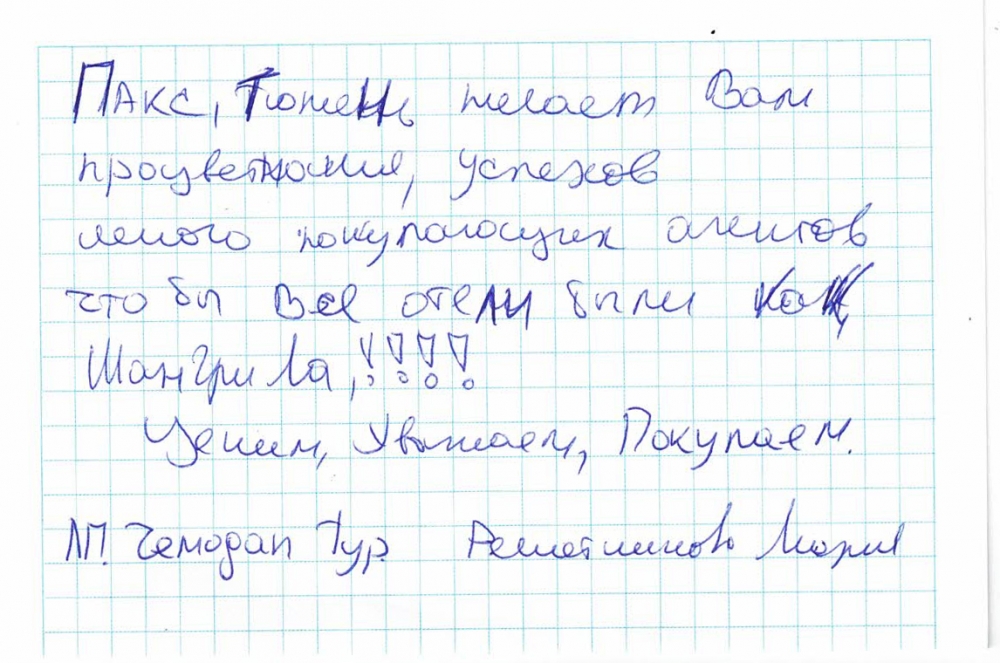 Пакс, Тюмень желает Вам
процветания, успехов
много покупающих агентов
что бы все отели были как
Шангри Ла, !!!!
Ценим, Уважаем, Покупаем.
Чемодан Тур Решетникова Мария